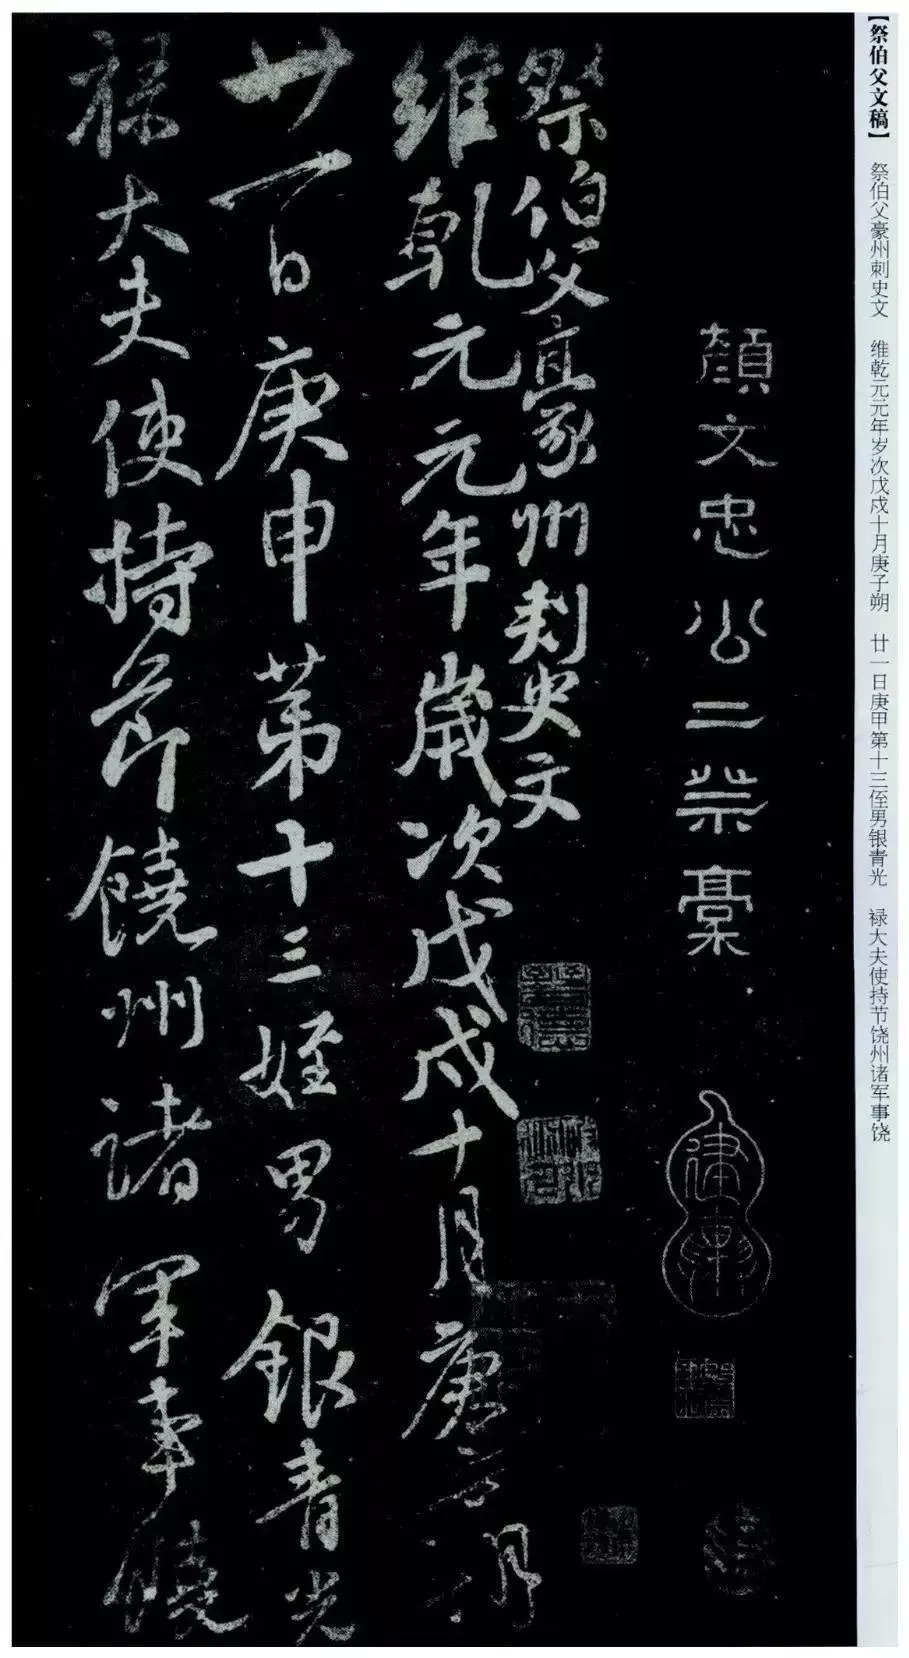 【祭伯父文稿】 祭伯父豪州刺史文 维乾元元年岁次戊戍十月庚子朔 廿一日庚甲第十三侄男银青光 禄大夫使持节饶州诸军事饶
顏文忠公二祭稾
祭伯父豪州刺史文
維乾元元年歲次戊戌十月庚子朔
廿一日庚申第十三姪男銀青光
祿大夫使持節饒州諸軍事饒